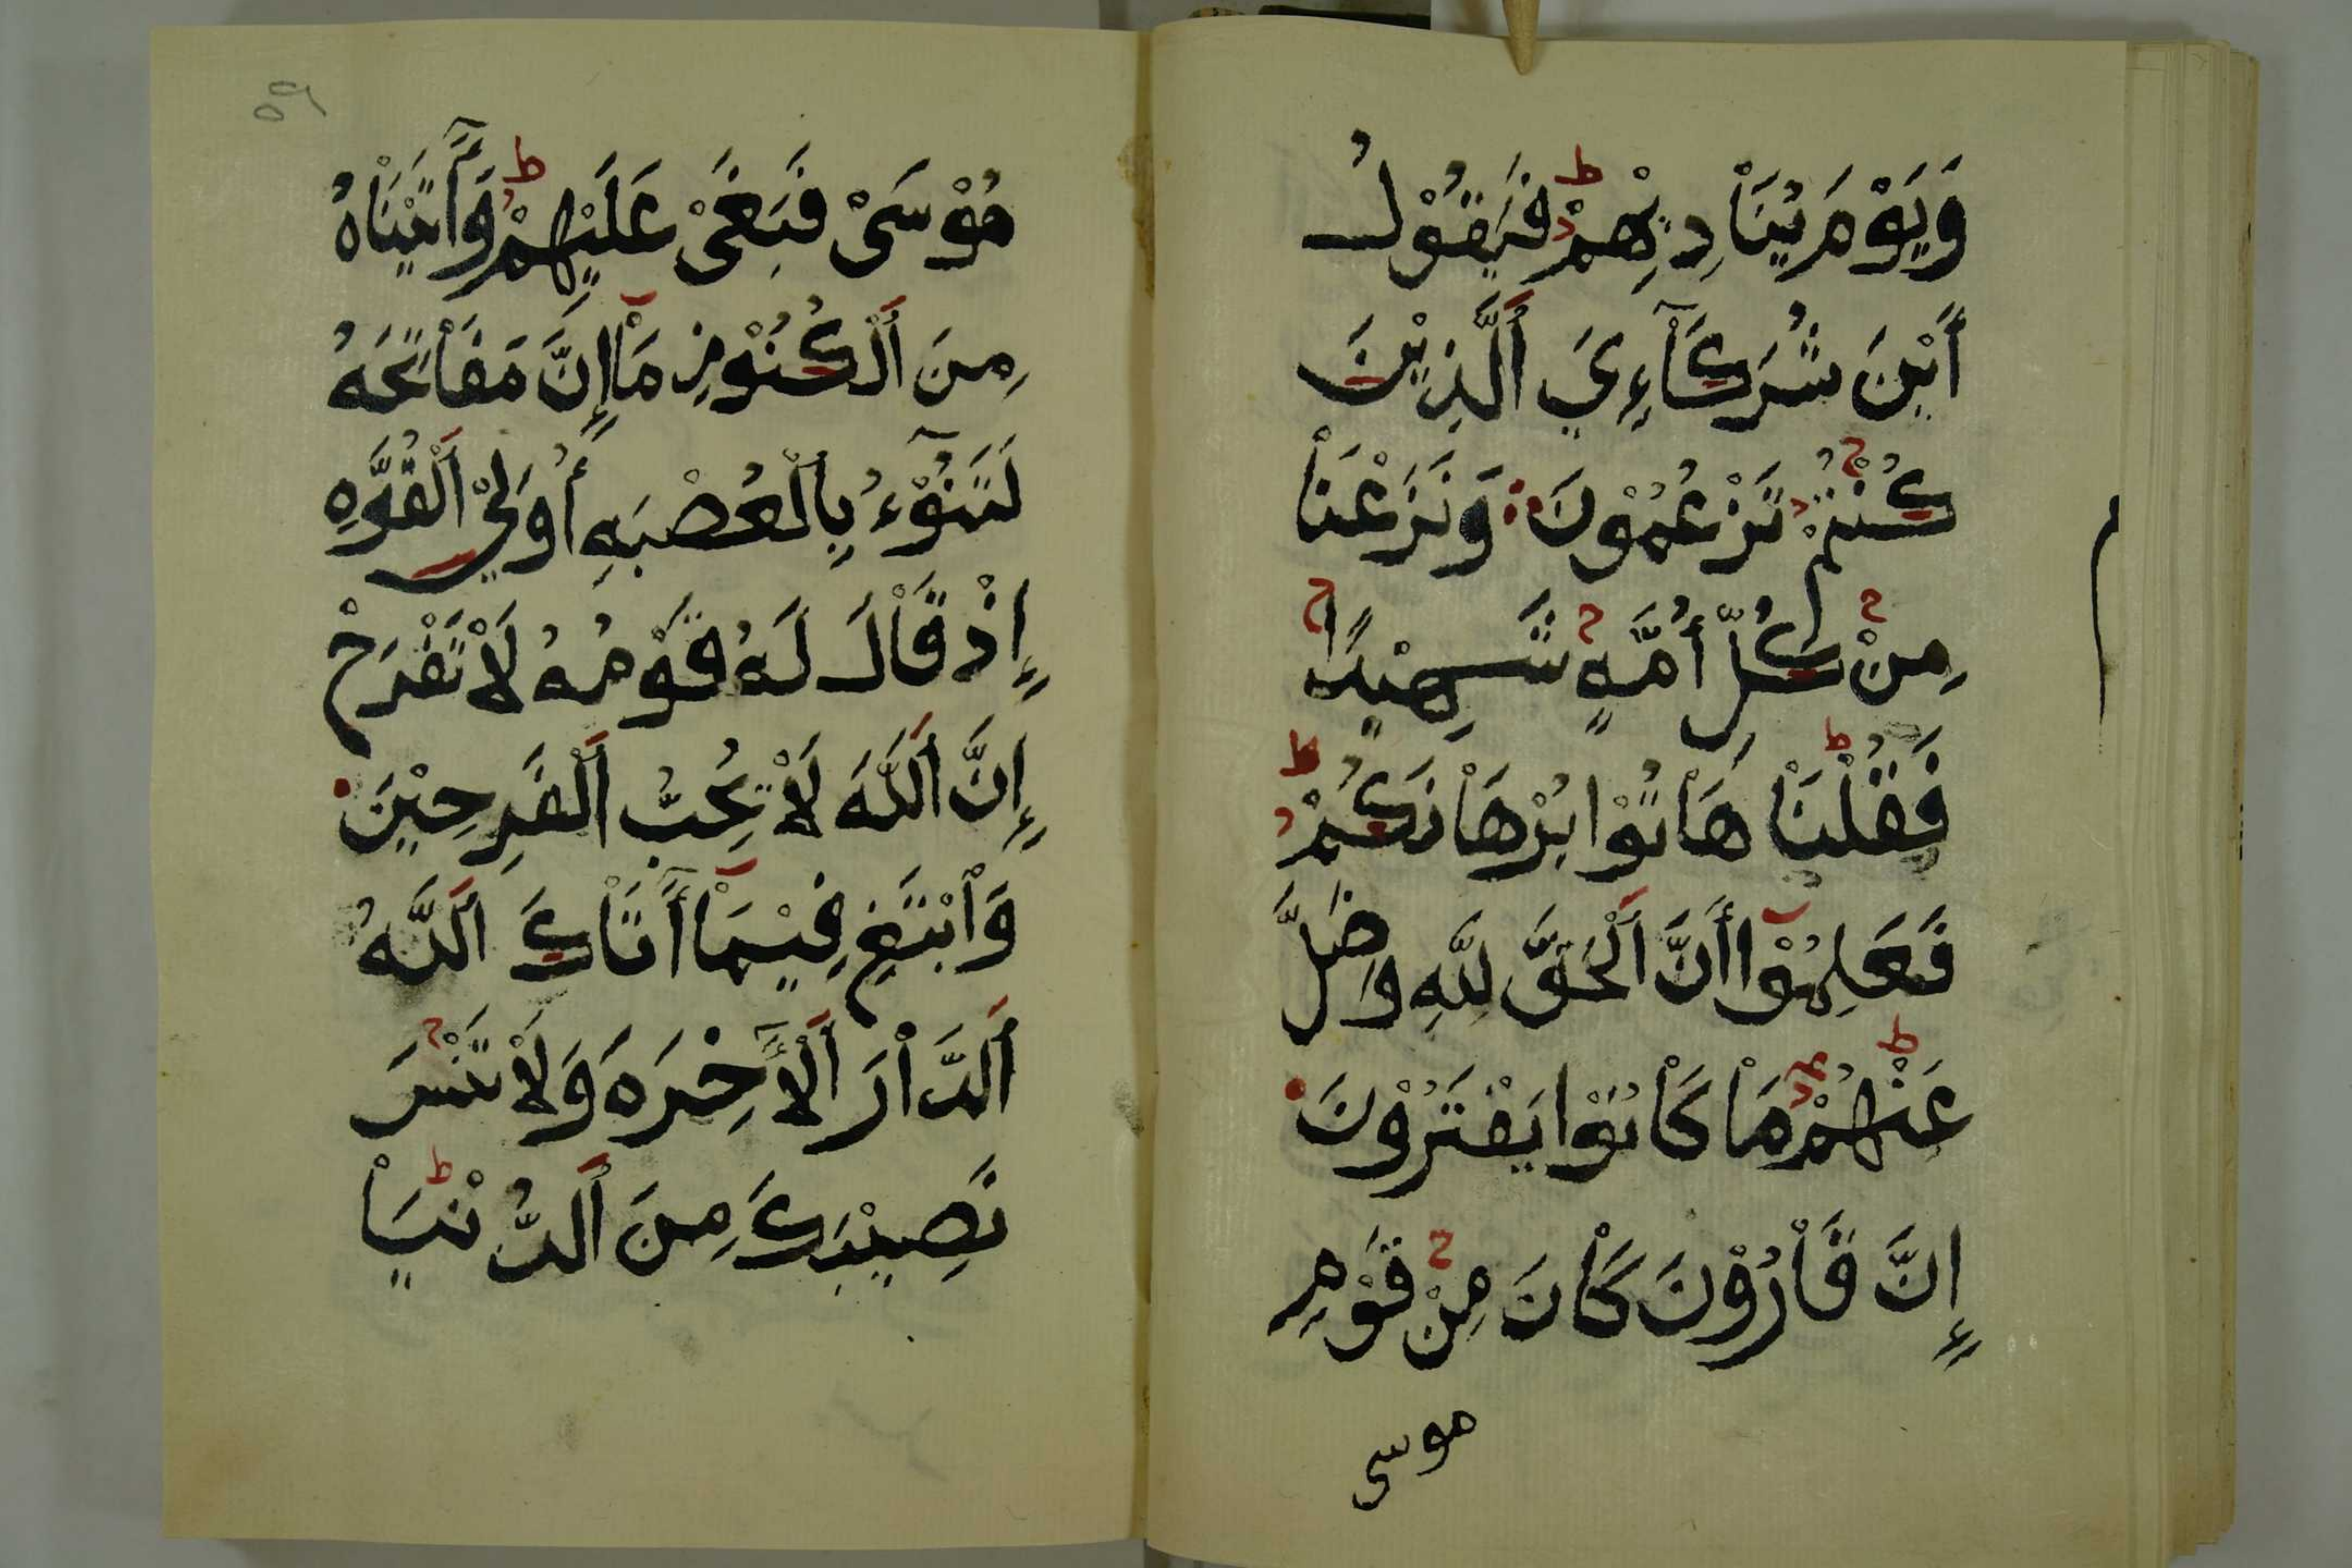 وَيَوْمَ يُنَاْدِيْهِمْ فَيَقُوْلُ
أَيْنَ شُرَكَآءِيَ اَلَّذِيْنَ
كُنْتُمْ تَزْعُمُوْنَ وَنَزَعْنَاْ
مِنْ كُلِّ أُمَّهٍ شَهِيْدًا
فَقُلْنَاْ هَاْتُوْا بُرْهَاْنَكُمْ
فَعَلِمُوْا أَنَّ اَلْحَقَّ لِلَّهِ وضَلَّ
عَنْهُمْ مَاْ كَاْنُوْا يَفْتَرُوْنَ
إِنَّ قَاْرُوْنَ كَاْنَ مِنْ قَوْمِ
موسى
٥٩
مُوْسَىْ فَبَغَىْ عَلَيْهِمْ وَآَتَيْنَاْهُ
مِنَ اَلْكُنُوْزِ مَاْ إِنَّ مَفَاْتِحَهُ
لَتَنُوْٓءُ بِالْعُصْبَهِ أُوْلِيْ اَلْقُوَّهِ
إِذْ قَاْلَ لَهُ قَوْمُهُ لَاْ تَفْرَحْ
إِنَّ اَللَّهَ لَاْ يُحِبُّ اَلْفَرِحِيْنَ
وَاْبْتَغِ فِيْمَاْ آَتَاْكَ اَللَّهُ
اَلدَّاْرَ اَلْآَخِرَهَ وَلَاْ تَنْسَ
نَصِيْبَكَ مِنَ اَلدُّنْيَاْ